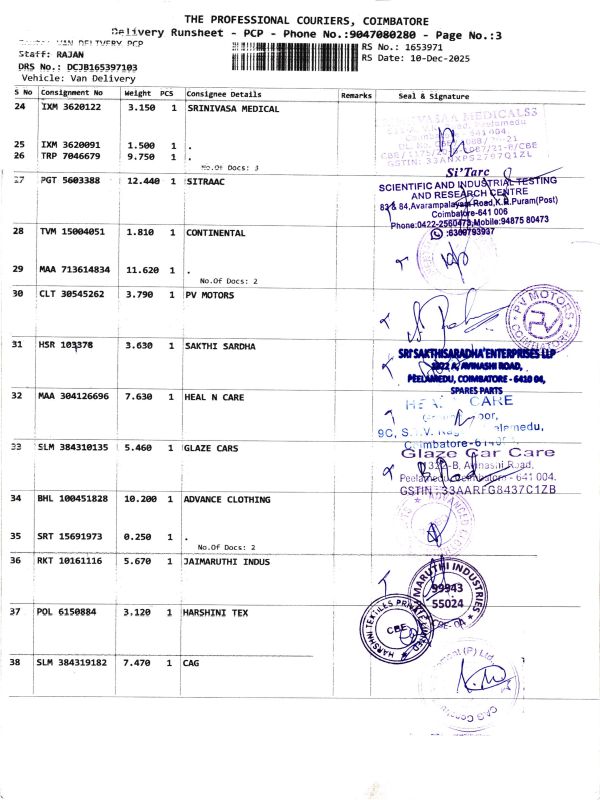 THE PROFESSIONAL COURIERS, COIMBATORE
Delivery Runsheet - PCP - Phone No.:9047080280 - Page No.:3
VAN DELIVERY PCP
Staff: RAJAN
RS No.: 1653971
DRS No.: DCJB165397103
RS Date: 10-Dec-2025
Vehicle: Van Delivery
S No Consignment No Weight PCS Consignee Details Remarks Seal & Signature
24 IXM 3620122 3.150 1 SRINIVASA MEDICAL
25 IXM 3620091 1.500 1 .
26 TRP 7046679 9.750 1 .
No.Of Docs: 3
27 PGT 5603388 12.440 1 SITRAAC
Si'Tarc
SCIENTIFIC AND INDUSTRIAL TESTING
AND RESEARCH CENTRE
83 & 84, Avarampalayam Road, K.R.Puram(Post)
Coimbatore-641 006
Phone:0422-2560473, Mobile:94875 80473
28 TVM 15004051 1.810 1 CONTINENTAL
29 MAA 713614834 11.620 1 .
No.Of Docs: 2
30 CLT 30545262 3.790 1 PV MOTORS
PV MOTORS
COIMBATORE
31 HSR 103378 3.630 1 SAKTHI SARDHA
SRI SAKTHISARADHA ENTERPRISES LLP
AVINASHI ROAD,
PEELAMEDU, COIMBATORE - 6410 04,
SPARES PARTS
32 MAA 304126696 7.630 1 HEAL N CARE
CARE
33 SLM 384310135 5.460 1 GLAZE CARS
Glaze Car Care
Avinashi Road,
Peelamedu, Coimbatore - 641 004.
GSTIN: 33AARFG8437C1ZB
34 BHL 100451828 10.200 1 ADVANCE CLOTHING
35 SRT 15691973 0.250 1 .
No.Of Docs: 2
36 RKT 10161116 5.670 1 JAIMARUTHI INDUS
MARUTHI INDUSTRIES
99943
55024
37 POL 6150884 3.120 1 HARSHINI TEX
HARSHNI TEXTILES PRIVATE LIMITED
CBE
38 SLM 384319182 7.470 1 CAG
(P) Ltd.